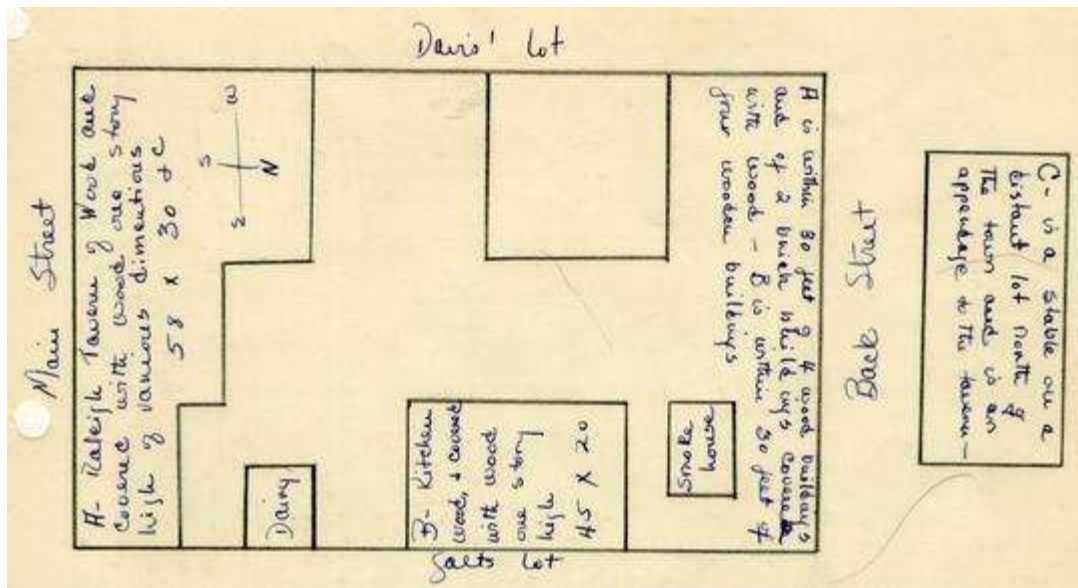 Davis' Lot
Main Street
A- Raleigh Tavern of Wood and
Covered with wood one story
high of various dimentions
58 x 30 &c
W
S
N
E
Dairy
B- Kitchen
wood, & covered
with wood
one story
high
45 x 20
Smoke
house
A is within 30 feet of 4 wood buildings
and of 2 brick buildings covered
with wood - B is within 30 feet of
four wooden buildings
Back Street
C- is a stable on a
distant lot North of
the town and is an
appendage to the tavern-
Galts Lot